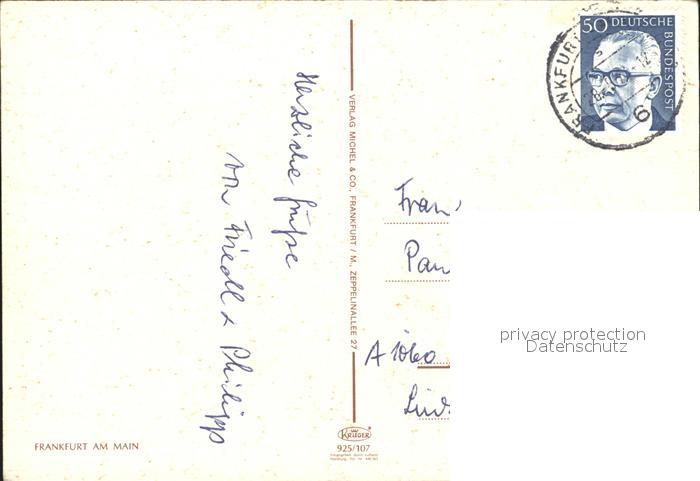 50 DEUTSCHE
BUNDESPOST
FRANKFURT
6
Herzliche Grüße
von Friedl & Philipp
VERLAG MICHEL & CO., FRANKFURT / M., ZEPPELINALLEE 27
Frau
A 1060
privacy protection
Datenschutz
KRÜGER
925/107
FRANKFURT AM MAIN